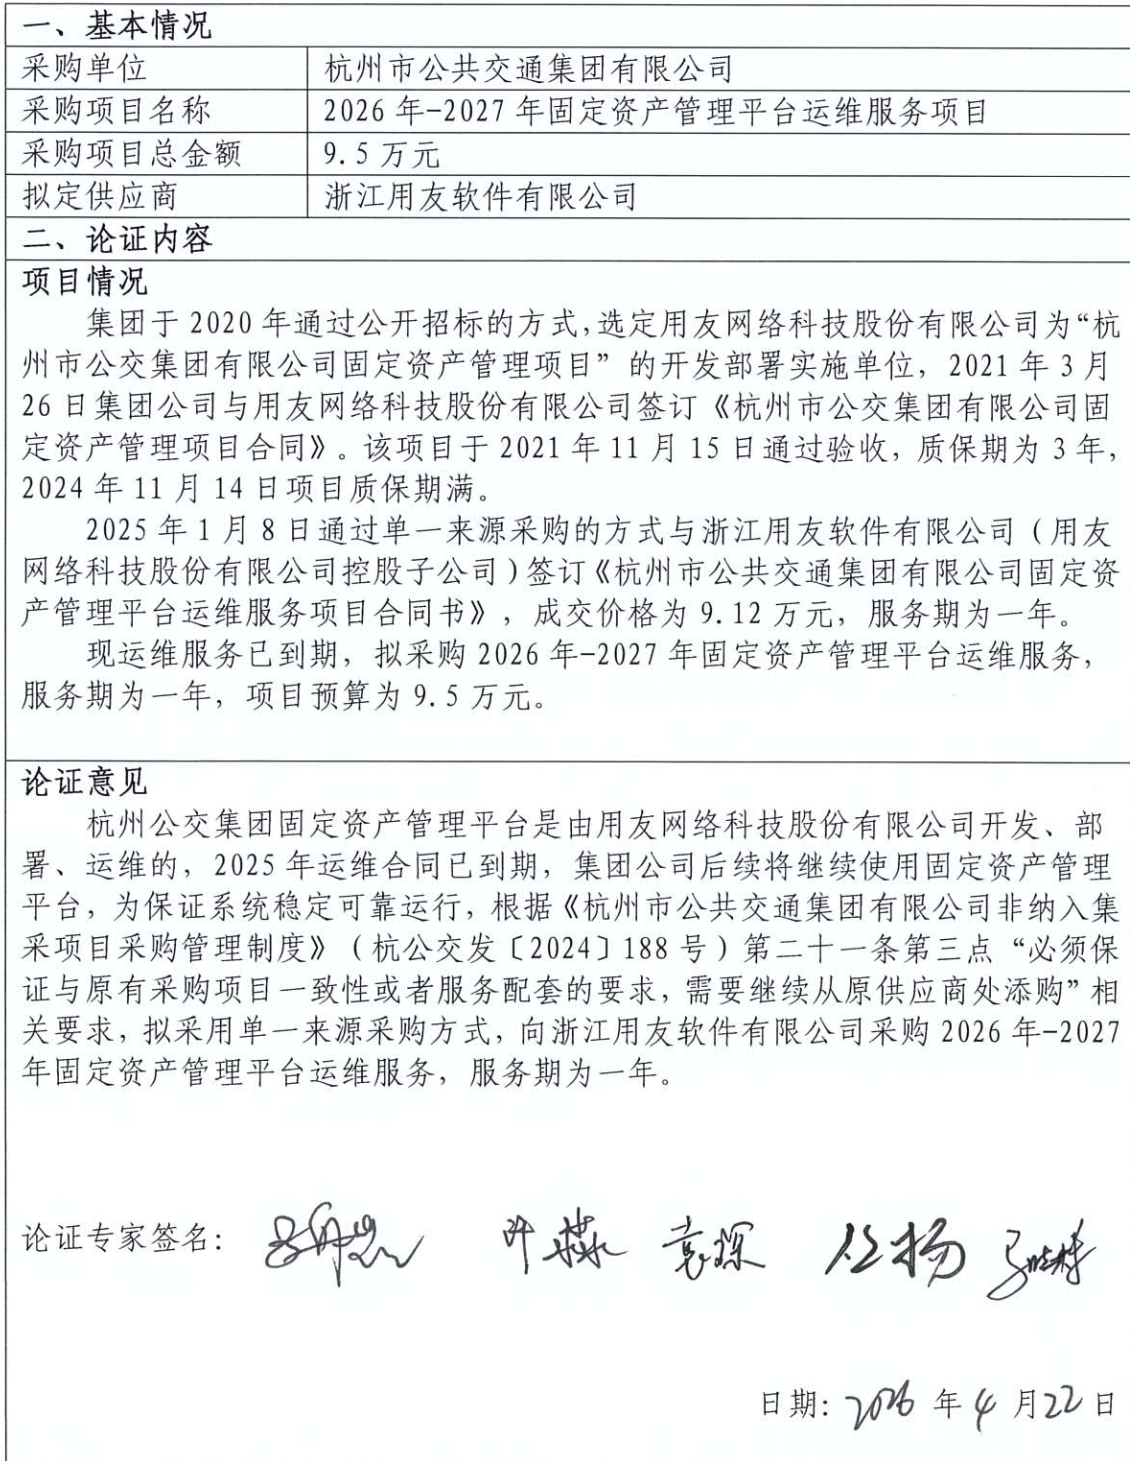 一、基本情况
采购单位 杭州市公共交通集团有限公司
采购项目名称 2026年-2027年固定资产管理平台运维服务项目
采购项目总金额 9.5万元
拟定供应商 浙江用友软件有限公司
二、论证内容
项目情况
集团于2020年通过公开招标的方式,选定用友网络科技股份有限公司为“杭
州市公交集团有限公司固定资产管理项目”的开发部署实施单位，2021年3月
26日集团公司与用友网络科技股份有限公司签订《杭州市公交集团有限公司固
定资产管理项目合同》。该项目于2021年11月15日通过验收，质保期为3年，
2024年11月14日项目质保期满。
2025年1月8日通过单一来源采购的方式与浙江用友软件有限公司（用友
网络科技股份有限公司控股子公司）签订《杭州市公共交通集团有限公司固定资
产管理平台运维服务项目合同书》，成交价格为9.12万元，服务期为一年。
现运维服务已到期，拟采购2026年-2027年固定资产管理平台运维服务，
服务期为一年，项目预算为9.5万元。
论证意见
杭州公交集团固定资产管理平台是由用友网络科技股份有限公司开发、部
署、运维的，2025年运维合同已到期，集团公司后续将继续使用固定资产管理
平台，为保证系统稳定可靠运行，根据《杭州市公共交通集团有限公司非纳入集
采项目采购管理制度》（杭公交发〔2024〕188号）第二十一条第三点“必须保
证与原有采购项目一致性或者服务配套的要求，需要继续从原供应商处添购”相
关要求，拟采用单一来源采购方式，向浙江用友软件有限公司采购2026年-2027
年固定资产管理平台运维服务，服务期为一年。
论证专家签名： 袁琛
日期：2026年4月22日